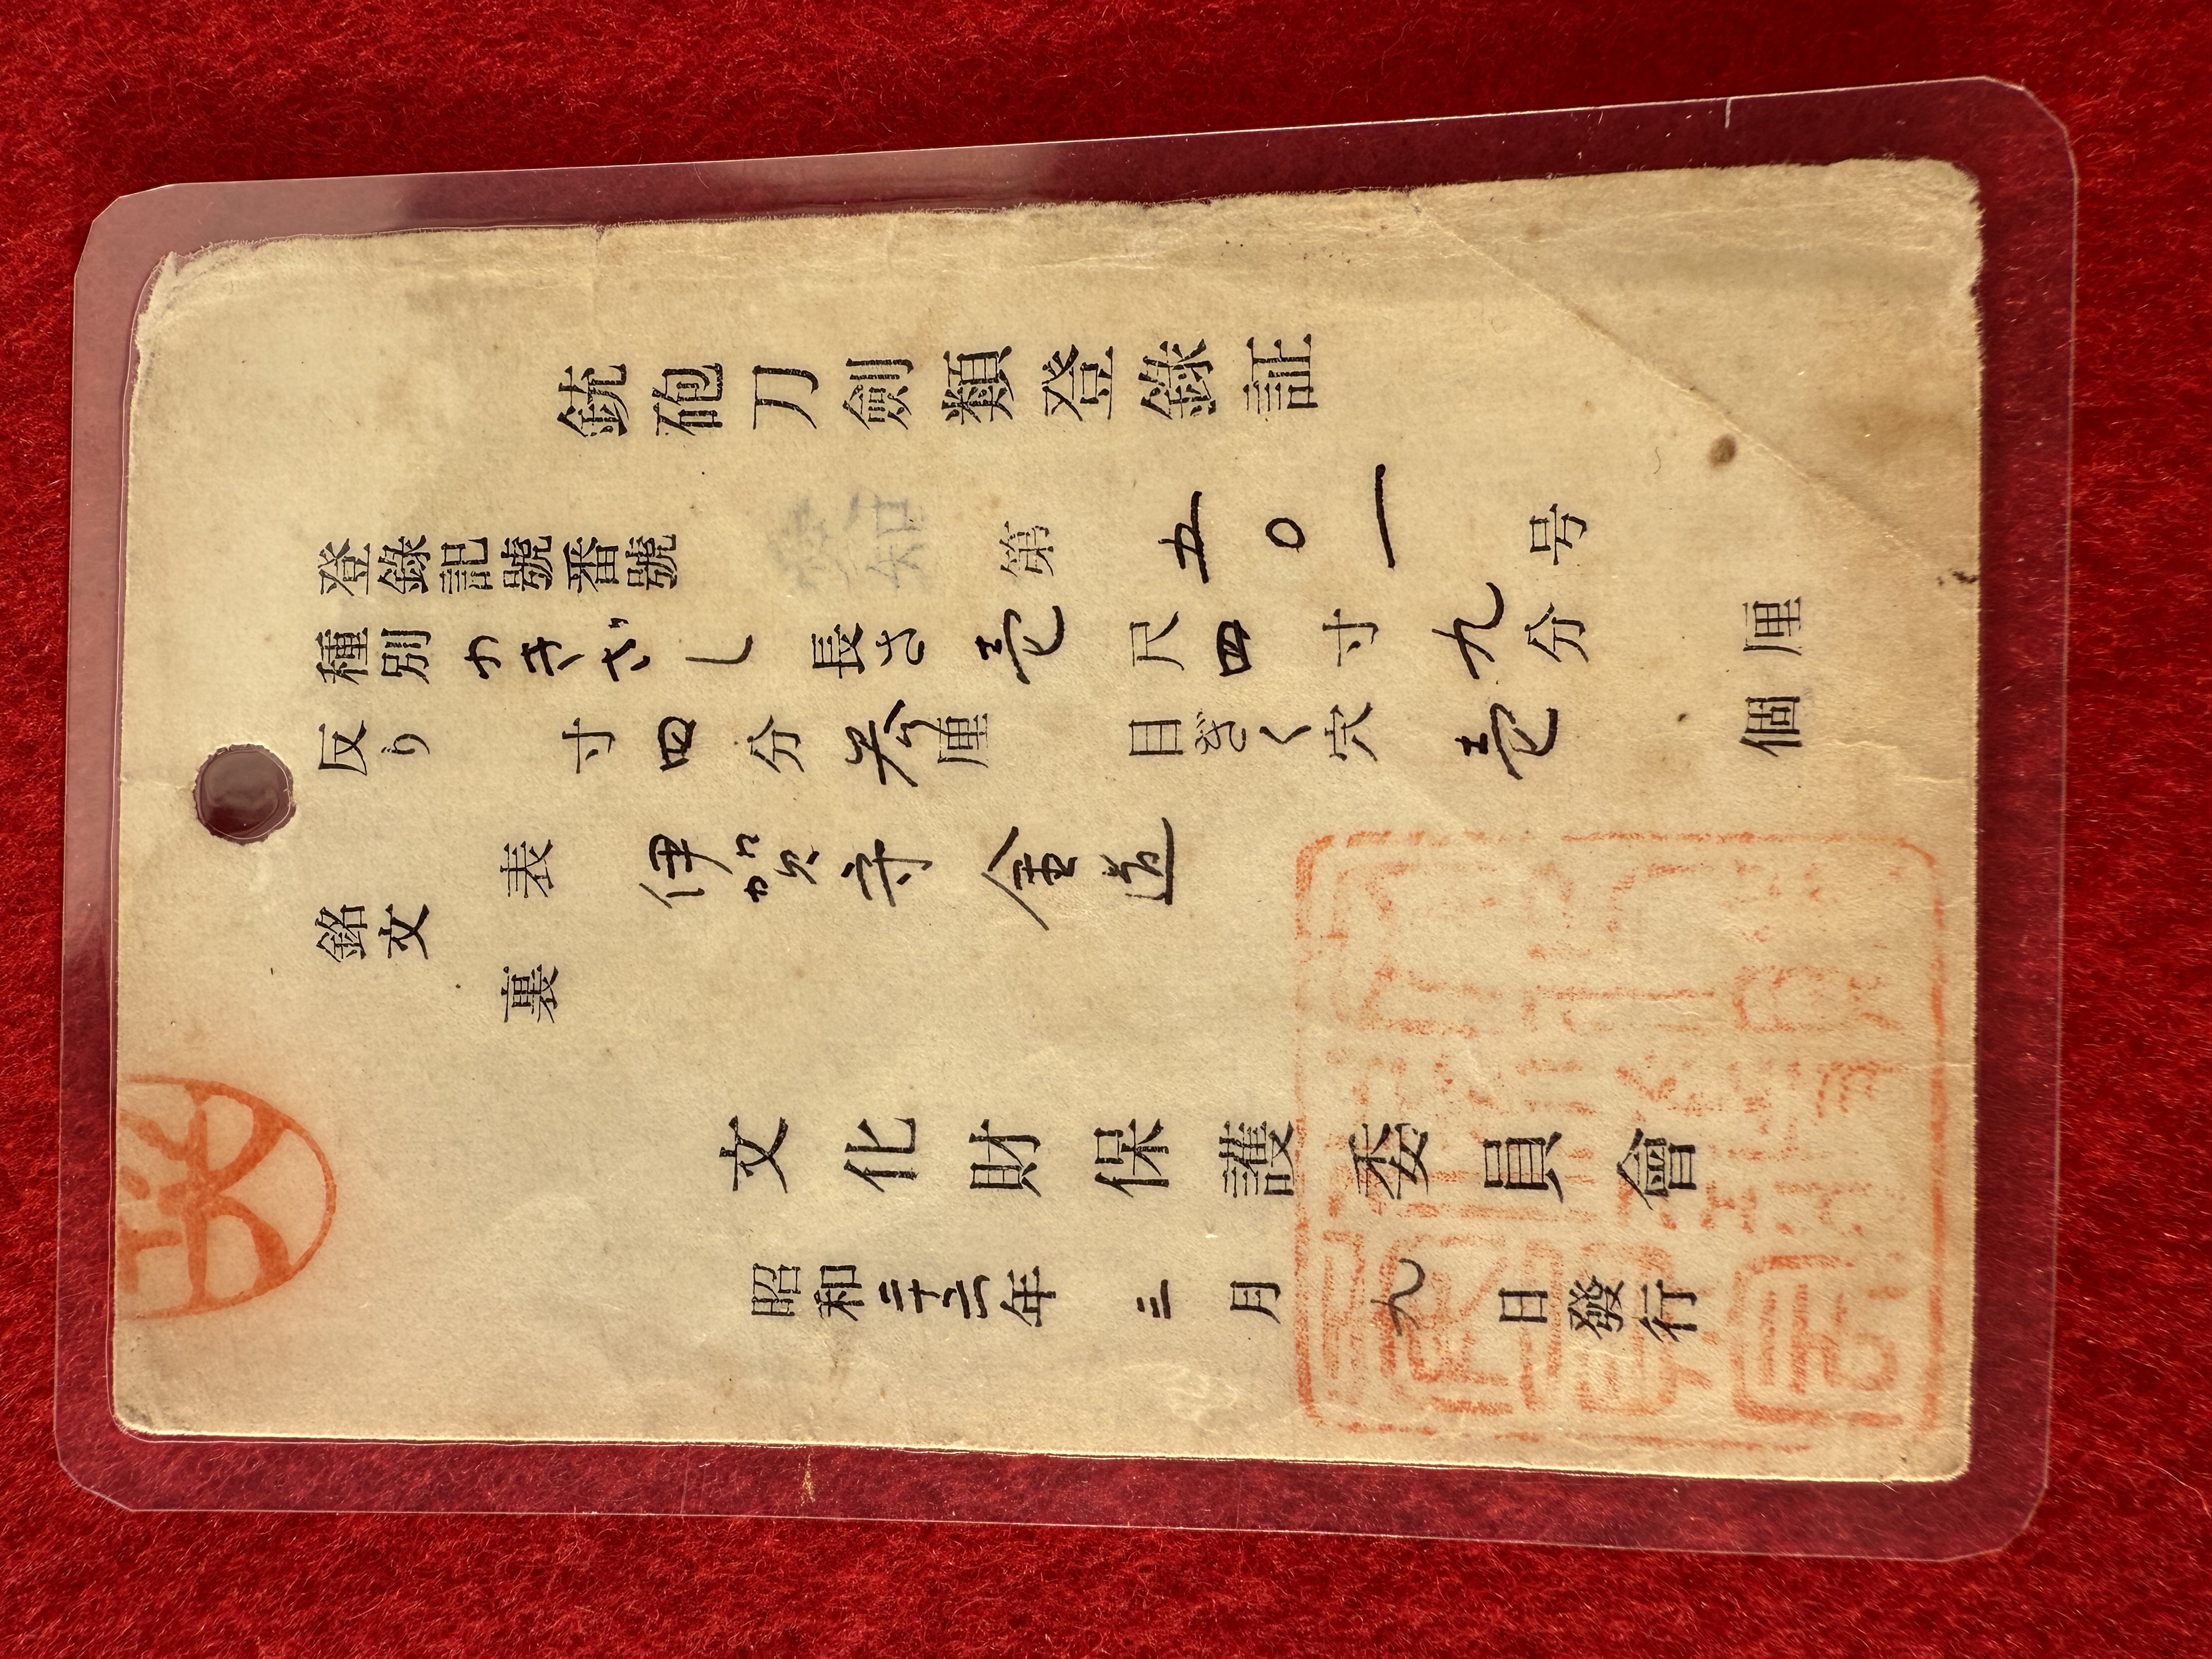 銃砲刀劍類登錄証
登錄記號番號 愛知 第五〇一号
種別 わきざし 長さ 壱尺四寸九分 厘
反り 寸四分参厘 目釘く穴 壱 個
銘文 表 伊賀守金道
裏
文化財保護委員會
昭和二十六年三月九日發行